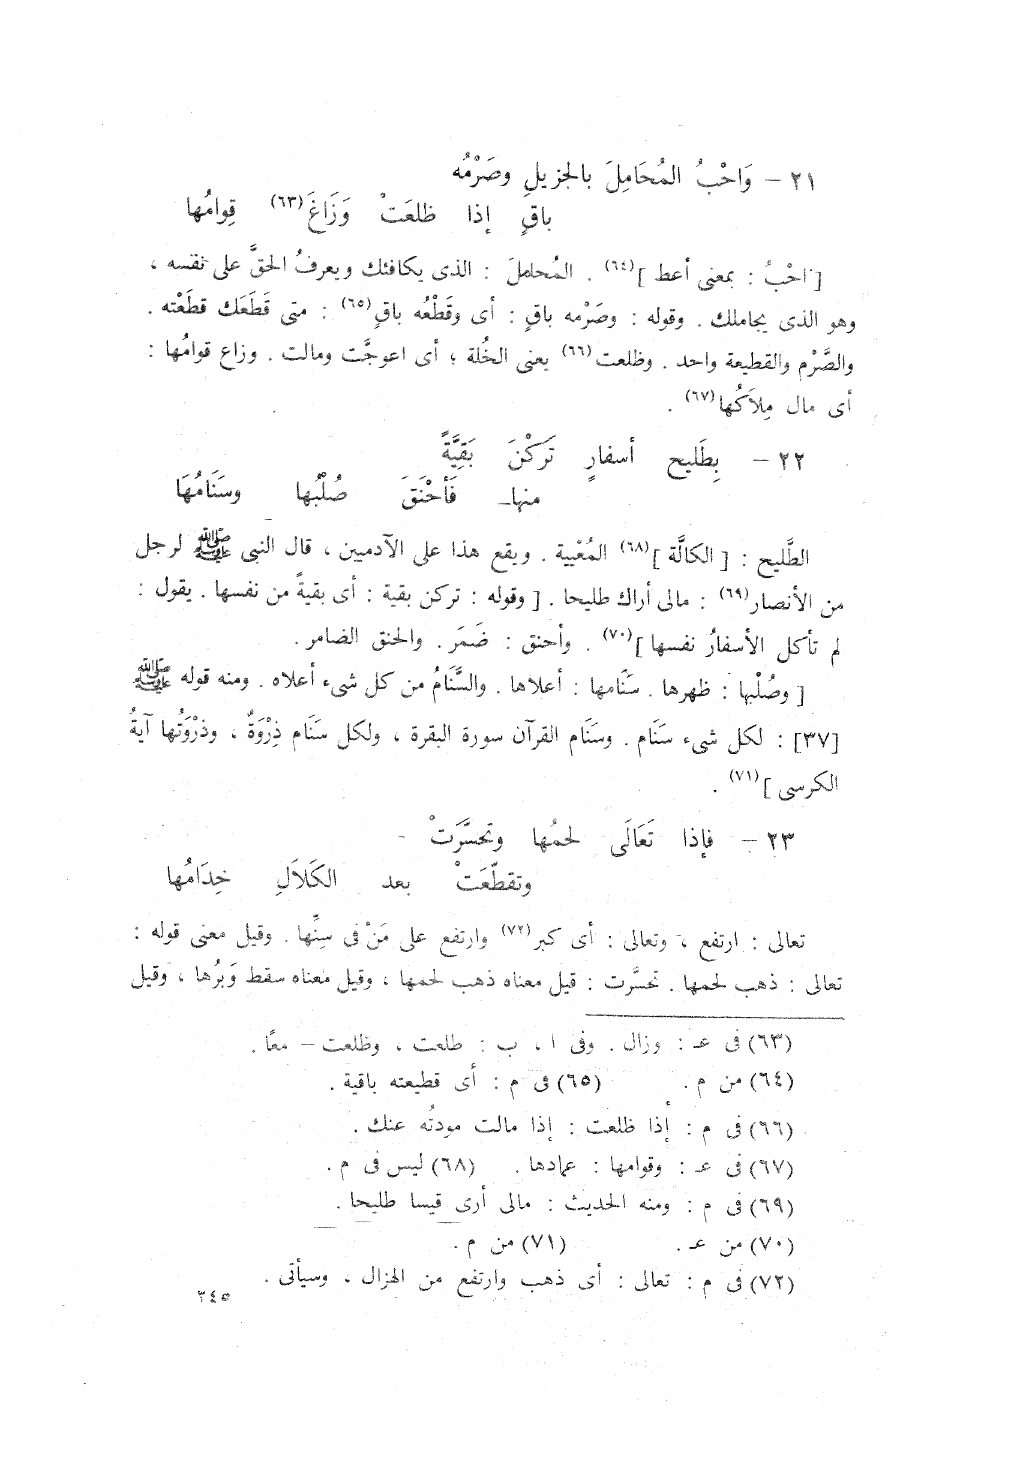 ٢١ – وَاحْبُ المُحَامِلَ بالجزيلِ وصَرْمُه
باقٍ إذا ظلعَتْ وَزَاغَ(٦٣) قِوامُها
[ احْبُ : بمعنى أعط ](٦٤) . المُحاملَ : الذى يكافئك ويعرفُ الحقَّ على نفسه ،
وهو الذى يجاملك . وقوله : وصَرْمه باقٍ : أى وقَطْعُه باقٍ(٦٥) : متى قَطَعَك قطَعْته .
والصَّرْم والقطيعة واحد . وظلعت(٦٦) يعنى الخُلة ؛ أى اعوجَّت ومالت . وزاع قوامُها :
أى مال مِلاَكُها(٦٧) .
٢٢ – بِطَليح أسفارٍ تَرَكْنَ بَقِيَّةً
منها فَأحْنَقَ صُلْبُها وسَنَامُهَا
الطَّليح : [ الكالَّة ](٦٨) المُعْيية . ويقع هذا على الآدميين ، قال النبى ﷺ لرجل
من الأنصار(٦٩) : مالى أراك طليحا . [ وقوله : تركن بقية : أى بقيةً من نفسها . يقول :
لم تأكل الأسفارُ نفسها ](٧٠) . وأحنق : ضَمَر . والحنق الضامر .
[ وصُلْبها : ظهرها . سَنَامها : أعلاها . والسَّنَامُ من كل شىء أعلاه . ومنه قوله ﷺ
[٣٧] : لكل شىء سَنَام . وسَنَام القرآن سورة البقرة ، ولكل سَنَام ذِرْوَةٌ ، وذرْوَتُها آيةُ
الكرسى ](٧١) .
٢٣ – فإذا تَعَالَى لحمُها وتحسَّرَتْ
وتقطّعَتْ بعد الكَلاَلِ خِدَامُها
تعالى : ارتفع ، وتعالى : أى كبر(٧٢) وارتفع على مَنْ فى سِنِّها . وقيل معنى قوله :
تعالى : ذهب لحمها . تحسَّرت : قيل معناه ذهب لحمها ، وقيل معناه سقط وَبَرُها ، وقيل
(٦٣) فى عـ : وزال . وفى ا ، ب : طلعت ، وظلعت – معًا .
(٦٤) من م . (٦٥) فى م : أى قطيعته باقية .
(٦٦) فى م : إذا ظلعت : إذا مالت مودتُه عنك .
(٦٧) فى عـ : وقوامها : عمادها . (٦٨) ليس فى م .
(٦٩) فى م : ومنه الحديث : مالى أرى قيسا طليحا .
(٧٠) من عـ . (٧١) من م .
(٧٢) فى م : تعالى : أى ذهب وارتفع من الهزال ، وسيأتى .
٣٤٥